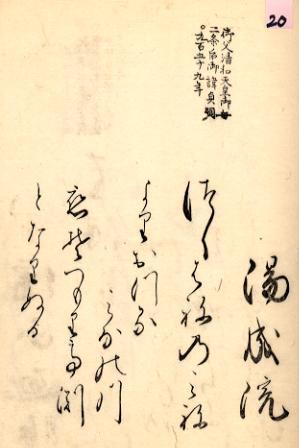 20
御父清和天皇御母
二条后御諱貞明
陽成院
つくはねのみね
よりおつる
みなの川
恋そつもりて淵
となりぬる